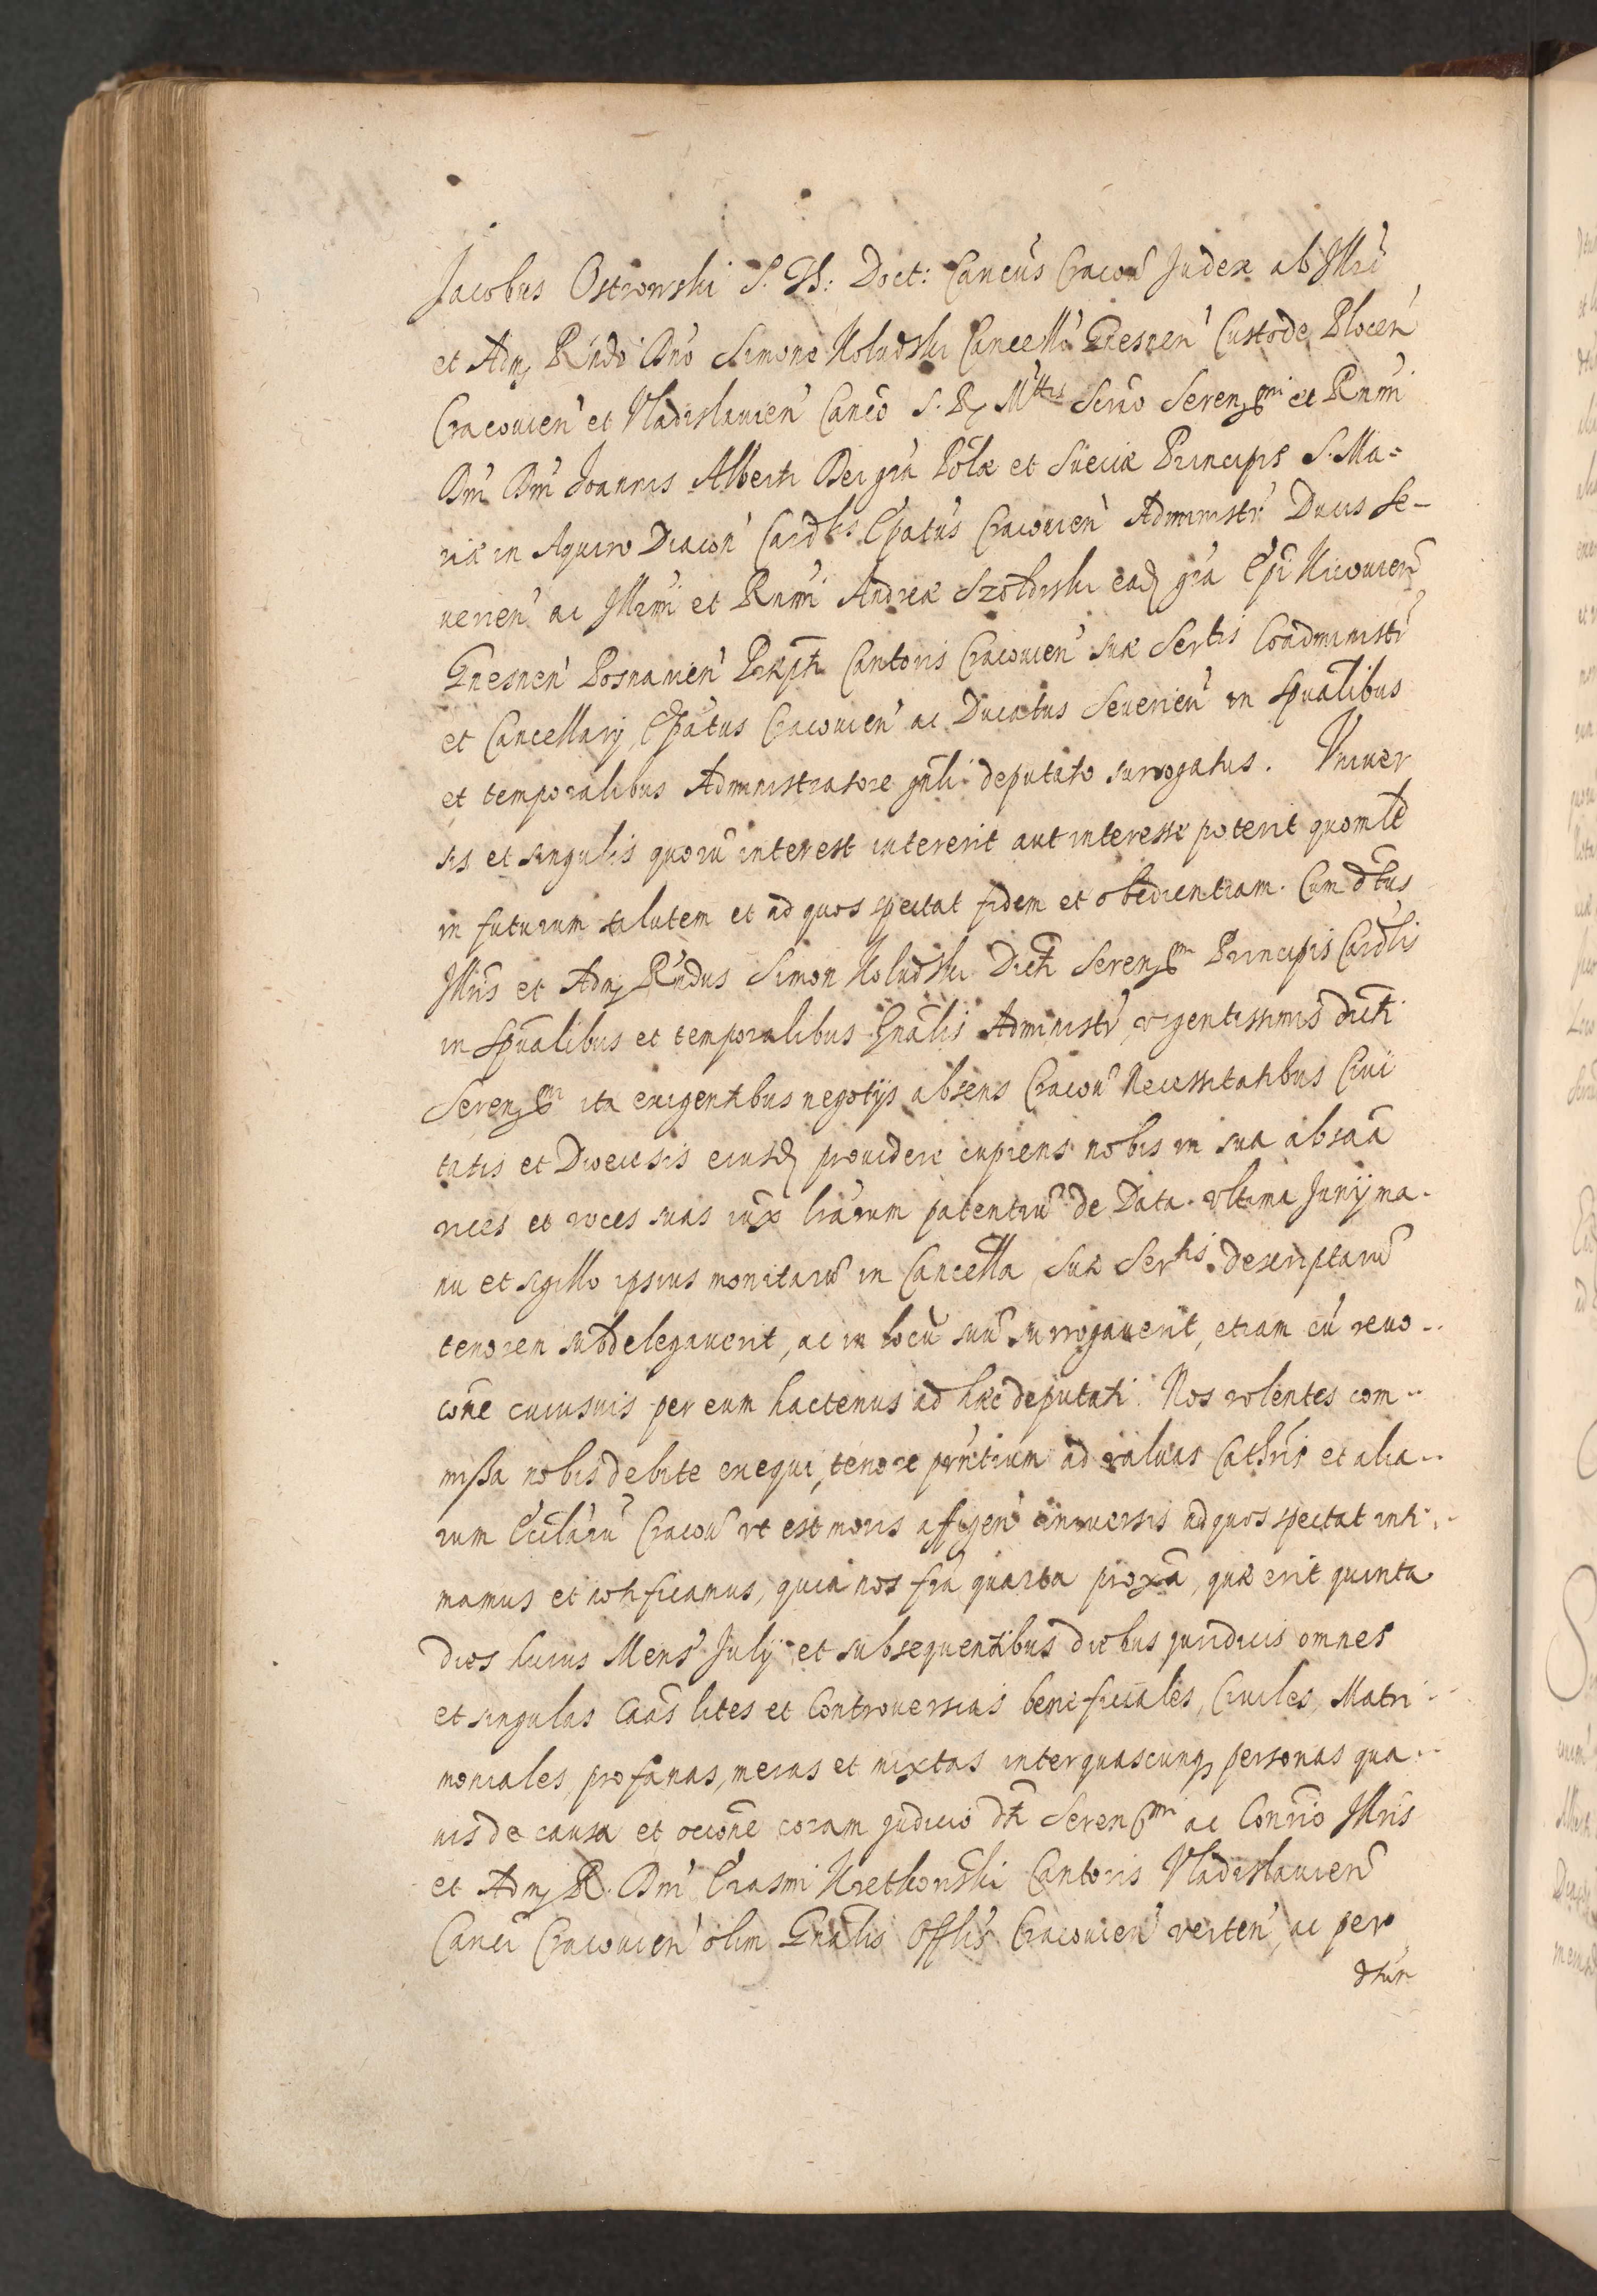 Jacobus Ostrowski S. Th: Doct: Cancūs Cracoū Judex ab Jllrī
et Adm̨ Rńdo Dńo Simone Koludski Cancell̄ Gnesnen̄ Custode Plocen̄
Cracouien̄ et Vladislauien̄ Canco S. R. Mttis Scrio Seren̄smi et Rńmi
Dńi Dńi Joannis Alberti Dei grā Polæ et Sueciæ Principis S. Ma=
riæ in Aquiro Diacon̄ Cardlis Epatūs Cracouien̄ Administr̄ Ducis Se-
uerien̄ ac Jllrmi et Rńmi Andreæ Szołdrski ead̨ grā Epī Kiiouien̄
Gnesnen̄ Posnanien̄ Præptī Cantoris Cracouien̄ suæ Sertis Coadministr̄
et Cancellarij Epatūs Cracouien̄ ac Ducatus Seuerien̄ in spūalibus
et temporalibus Administratore gnli deputato surrogatus. Vniuer
sis et singulis quorū interest intererit aut interesse poterit quomlt
in futurum salutem et ad quos spectat fidem et obedientiam. Cum
Jllris et Adm̨ Rńdus Simon Koludski Dicti Seren̄smi Principis Cardlis
in spūalibus et temporalibus Gnālis Administr̄ vrgentissimis dicti
Seren̄smi ita exigentibus negotijs absens Cracoū Necessitatibus Ciui
tatis et Dioecesis eiusd̨ prouidere cupiens nobis in sua absn̄a
vices et voces suas iūx lrārum patentiū de Data vltima Junij ma-
nu et sigillo ipsius monitarū in Cancella suæ Sertis descriptarū
tenorem subdelegauerit, ac in locū suū surrogauerit, etiam cū reuo-
cōne cuiusuis per eum hactenus ad hæc deputati. Nos volentes com-
mißa nobis debite exequi, tenore prńtium ad valuas Cathris et alia-
rum Ecclārū Cracoū vt est moris affigen̄ vniuersis ad quos spectat inti-
mamus et notificamus, quia nos fra quarta proxa, quæ erit quinta
dies huius Mens̄ Julij et subsequentibus diebus juridicis omnes
et singulas Caās lites et Controuersias beneficiales, Ciuiles, Matri-
moniales, profanas, meras et mixtas inter quascunq̨ personas qua-
uis de causa et occōne coram judicio dti Seren̄smi ac Consrio Jllris
et Adm̨ R. Dńi Erasmi Kretkowski Cantoris Vladislauien̄
Canci Cracouien̄ olim Gnālis Offlis Cracouien̄ verten̄, ac per